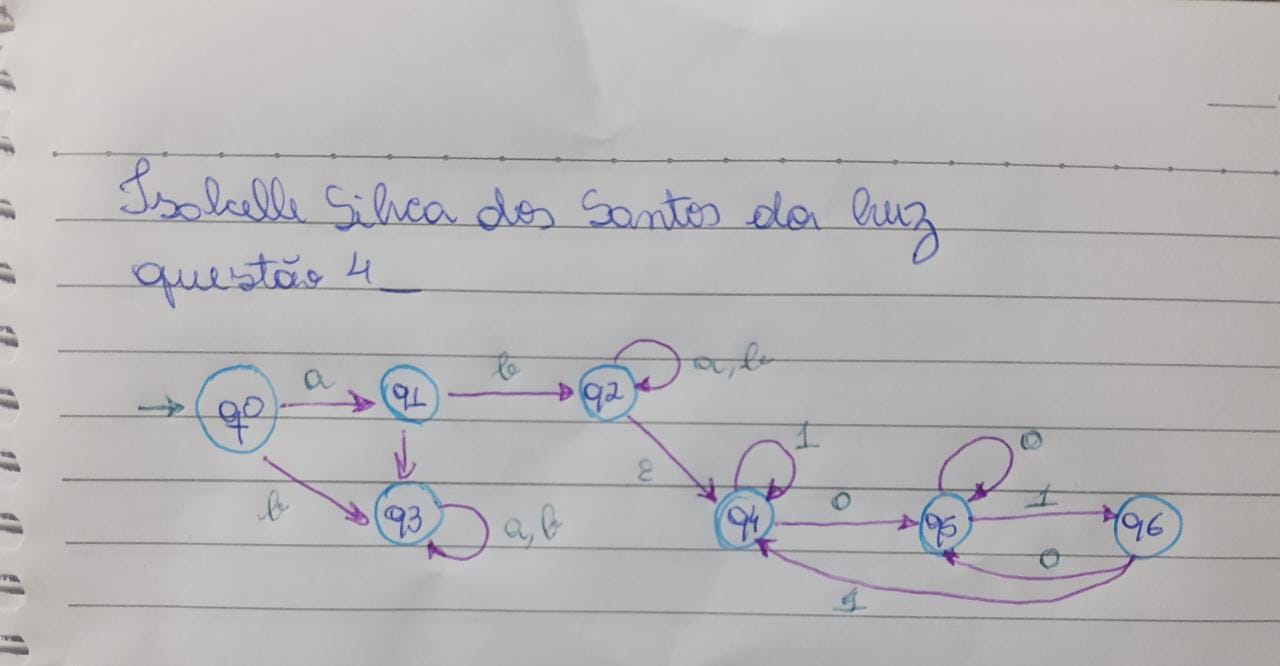 Isabelle Silva dos Santos da Cruz
questão 4_
q0 a q1 b q2 a, b
ε 1 0
b q3 a, b q4 0 q5 1 q6
0
1